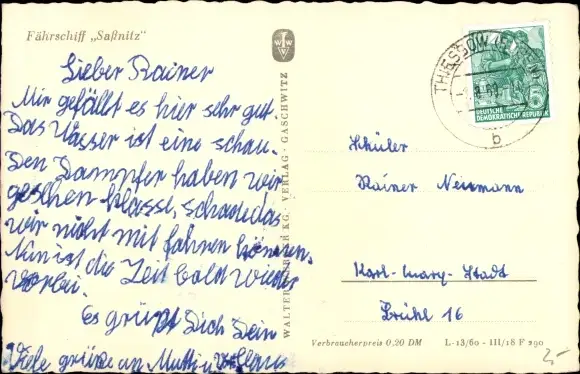 Fährschiff „Saßnitz"
Lieber Rainer
Mir gefällt es hier sehr gut.
Das Wasser ist eine schau.
Den Dampfer haben wir
gesehen klasse, schade das
wir nicht mit fahren können.
Nun ist die Zeit bald wieder
vorbei.
Es grüßt Dich Dein
Viele grüße an Mutti u.
VERLAG · GASCHWITZ
WALTER KG.
THIESSOW
b
DEUTSCHE
DEMOKRATISCHE REPUBLIK
5
Schüler
Rainer Neumann
Karl-Marx-Stadt
Brühl 16
Verbraucherpreis 0,20 DM
L-13/60 - III/18 F 290